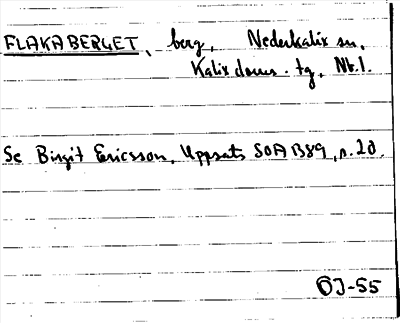 FLAKABERGET, berg, Nederkalix sn,
Kalix doms. tg, Nb.l.
Se Birgit Ericsson, Uppsats SOA B89, s. 20.
ÖJ-55